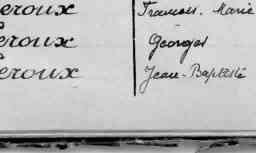 eroux François-Marie
eroux Georges
eroux Jean-Baptiste